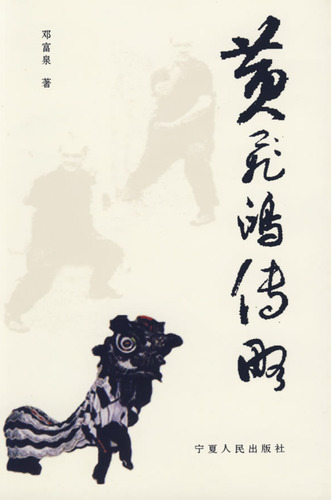 黄飞鸿传略
邓富泉 著
宁夏人民出版社